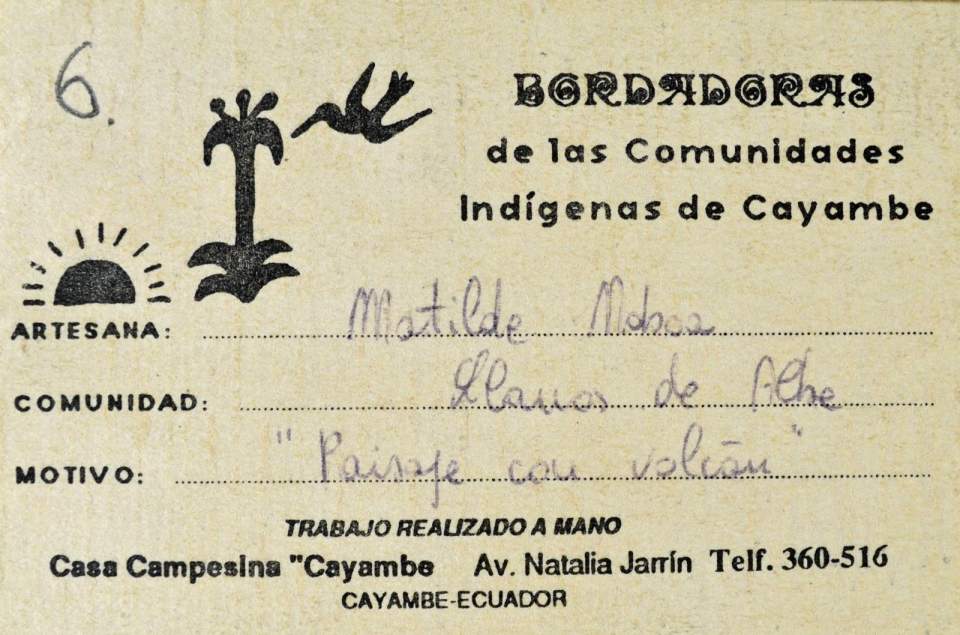 6.
BORDADORAS
de las Comunidades
Indígenas de Cayambe
ARTESANA: Matilde Noboa
COMUNIDAD: Llanos de Albe
MOTIVO: "Paisaje con volcán"
TRABAJO REALIZADO A MANO
Casa Campesina "Cayambe Av. Natalia Jarrín Telf. 360-516
CAYAMBE-ECUADOR